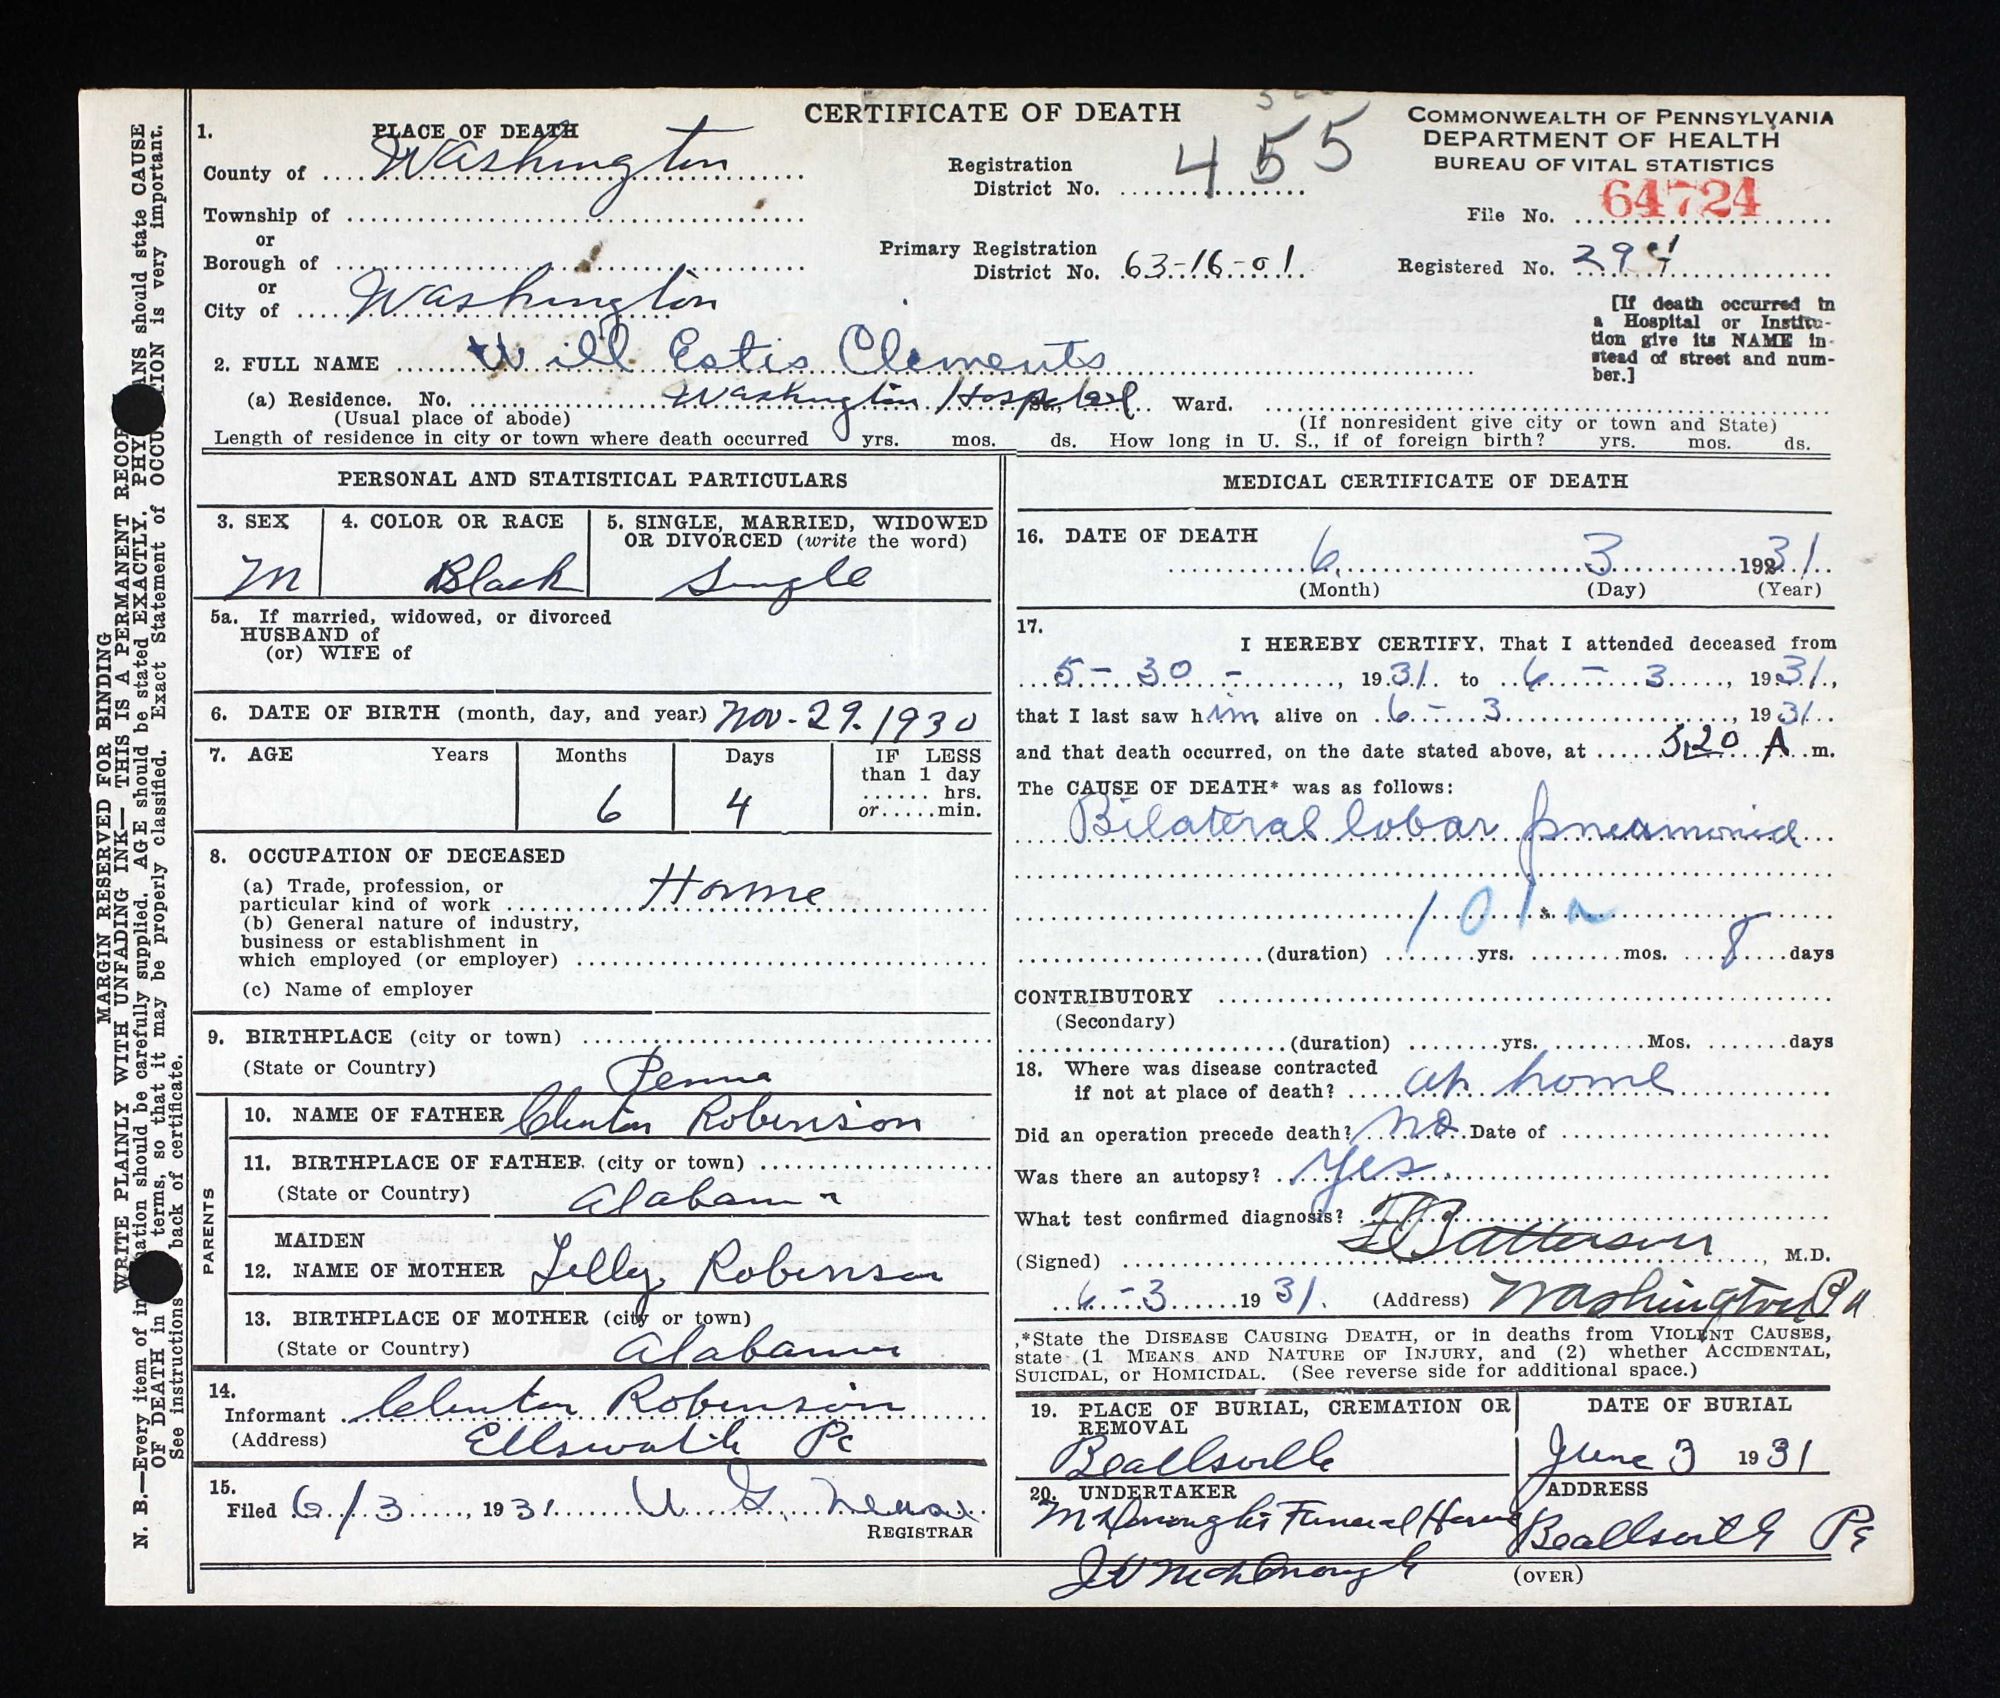 CERTIFICATE OF DEATH
COMMONWEALTH OF PENNSYLVANIA
DEPARTMENT OF HEALTH
BUREAU OF VITAL STATISTICS
1. PLACE OF DEATH
County of Washington
Township of
or
Borough of
or
City of Washington
Registration
District No. 455
Primary Registration
District No. 63-16-01
File No. 64724
Registered No. 294
[If death occurred in
a Hospital or Institu-
tion give its NAME in-
stead of street and num-
ber.]
2. FULL NAME Will Estis Clements
(a) Residence. No. Washington Hospital St., Ward.
(Usual place of abode) (If nonresident give city or town and State)
Length of residence in city or town where death occurred yrs. mos. ds. How long in U. S., if of foreign birth? yrs. mos. ds.
PERSONAL AND STATISTICAL PARTICULARS
3. SEX M
4. COLOR OR RACE Black
5. SINGLE, MARRIED, WIDOWED
OR DIVORCED (write the word) Single
5a. If married, widowed, or divorced
HUSBAND of
(or) WIFE of
6. DATE OF BIRTH (month, day, and year) Nov. 29. 1930
7. AGE Years Months Days IF LESS
than 1 day
hrs.
or min.
6 4
8. OCCUPATION OF DECEASED
(a) Trade, profession, or
particular kind of work Home
(b) General nature of industry,
business or establishment in
which employed (or employer)
(c) Name of employer
9. BIRTHPLACE (city or town)
(State or Country) Penna
PARENTS
10. NAME OF FATHER Clinton Robinson
11. BIRTHPLACE OF FATHER (city or town)
(State or Country) Alabama
MAIDEN
12. NAME OF MOTHER Lilly Robinson
13. BIRTHPLACE OF MOTHER (city or town)
(State or Country) Alabama
14.
Informant Clinton Robinson
(Address) Ellsworth Pa
15.
Filed 6/3, 1931
REGISTRAR
MEDICAL CERTIFICATE OF DEATH
16. DATE OF DEATH
6 3 1931
(Month) (Day) (Year)
17. I HEREBY CERTIFY, That I attended deceased from
5-30-, 1931 to 6-3, 1931,
that I last saw him alive on 6-3, 1931
and that death occurred, on the date stated above, at 5:20 A m.
The CAUSE OF DEATH* was as follows:
Bilateral lobar pneumonia
101a
(duration) yrs. mos. 8 days
CONTRIBUTORY
(Secondary)
(duration) yrs. Mos. days
18. Where was disease contracted
if not at place of death? at home
Did an operation precede death? No Date of
Was there an autopsy? Yes.
What test confirmed diagnosis?
(Signed) Patterson, M.D.
6-3 1931. (Address) Washington Pa
*State the DISEASE CAUSING DEATH, or in deaths from VIOLENT CAUSES,
state (1 MEANS AND NATURE OF INJURY, and (2) whether ACCIDENTAL,
SUICIDAL, or HOMICIDAL. (See reverse side for additional space.)
19. PLACE OF BURIAL, CREMATION OR
REMOVAL
Beallsville
DATE OF BURIAL
June 3 1931
20. UNDERTAKER
McDonough's Funeral Home
J V McDonough
ADDRESS
Beallsville Pa
(OVER)
MARGIN RESERVED FOR BINDING
WRITE PLAINLY WITH UNFADING INK—THIS IS A PERMANENT RECOR
N. B.—Every item of in ation should be carefully supplied. AGE should be stated EXACTLY. PHY ANS should state CAUSE
OF DEATH in terms, so that it may be properly classified. Exact Statement of OCCU TION is very important.
See instructions back of certificate.